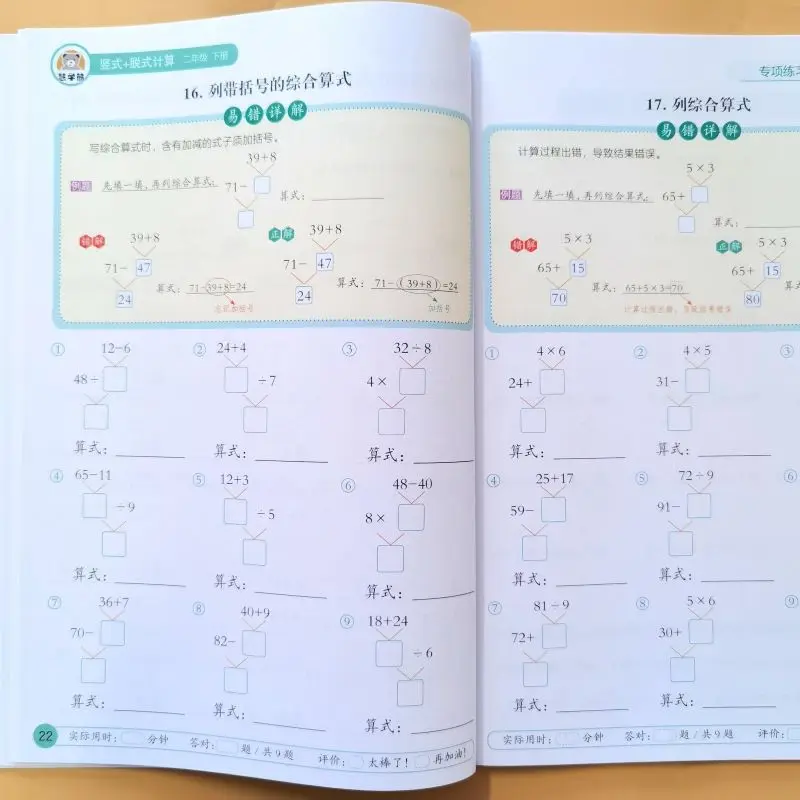 慧学熊
竖式+脱式计算 二年级 下册
16. 列带括号的综合算式
易错详解
写综合算式时，含有加减的式子须加括号。
39+8
例题 先填一填，再列综合算式。 71-
算式：
错解 39+8
71- 47
24
算式：71-39+8=24
正解 39+8
71- 47
24
算式：71-(39+8)=24
加括号
① 12-6
48÷
算式：
② 24+4
÷7
算式：
③ 32÷8
4×
算式：
④ 65-11
÷9
算式：
⑤ 12+3
÷5
算式：
⑥ 48-40
8×
算式：
⑦ 36+7
70-
算式：
⑧ 40+9
82-
算式：
⑨ 18+24
÷6
算式：
22 实际用时： 分钟 答对： 题/共9题 评价： 太棒了！ 再加油！
专项练习
17. 列综合算式
易错详解
计算过程出错，导致结果错误。
5×3
例题 先填一填，再列综合算式。 65+
算式：
错解 5×3
65+ 15
70
算式：65+5×3=70
计算过程出错，导致结果错误
正解 5×3
65+ 15
80
① 4×6
24+
算式：
② 4×5
31-
算式：
③
④ 25+17
59-
算式：
⑤ 72÷9
91-
算式：
⑥
⑦ 81÷9
72+
算式：
⑧ 5×6
30+
算式：
⑨
实际用时： 分钟 答对： 题/共9题 评价：